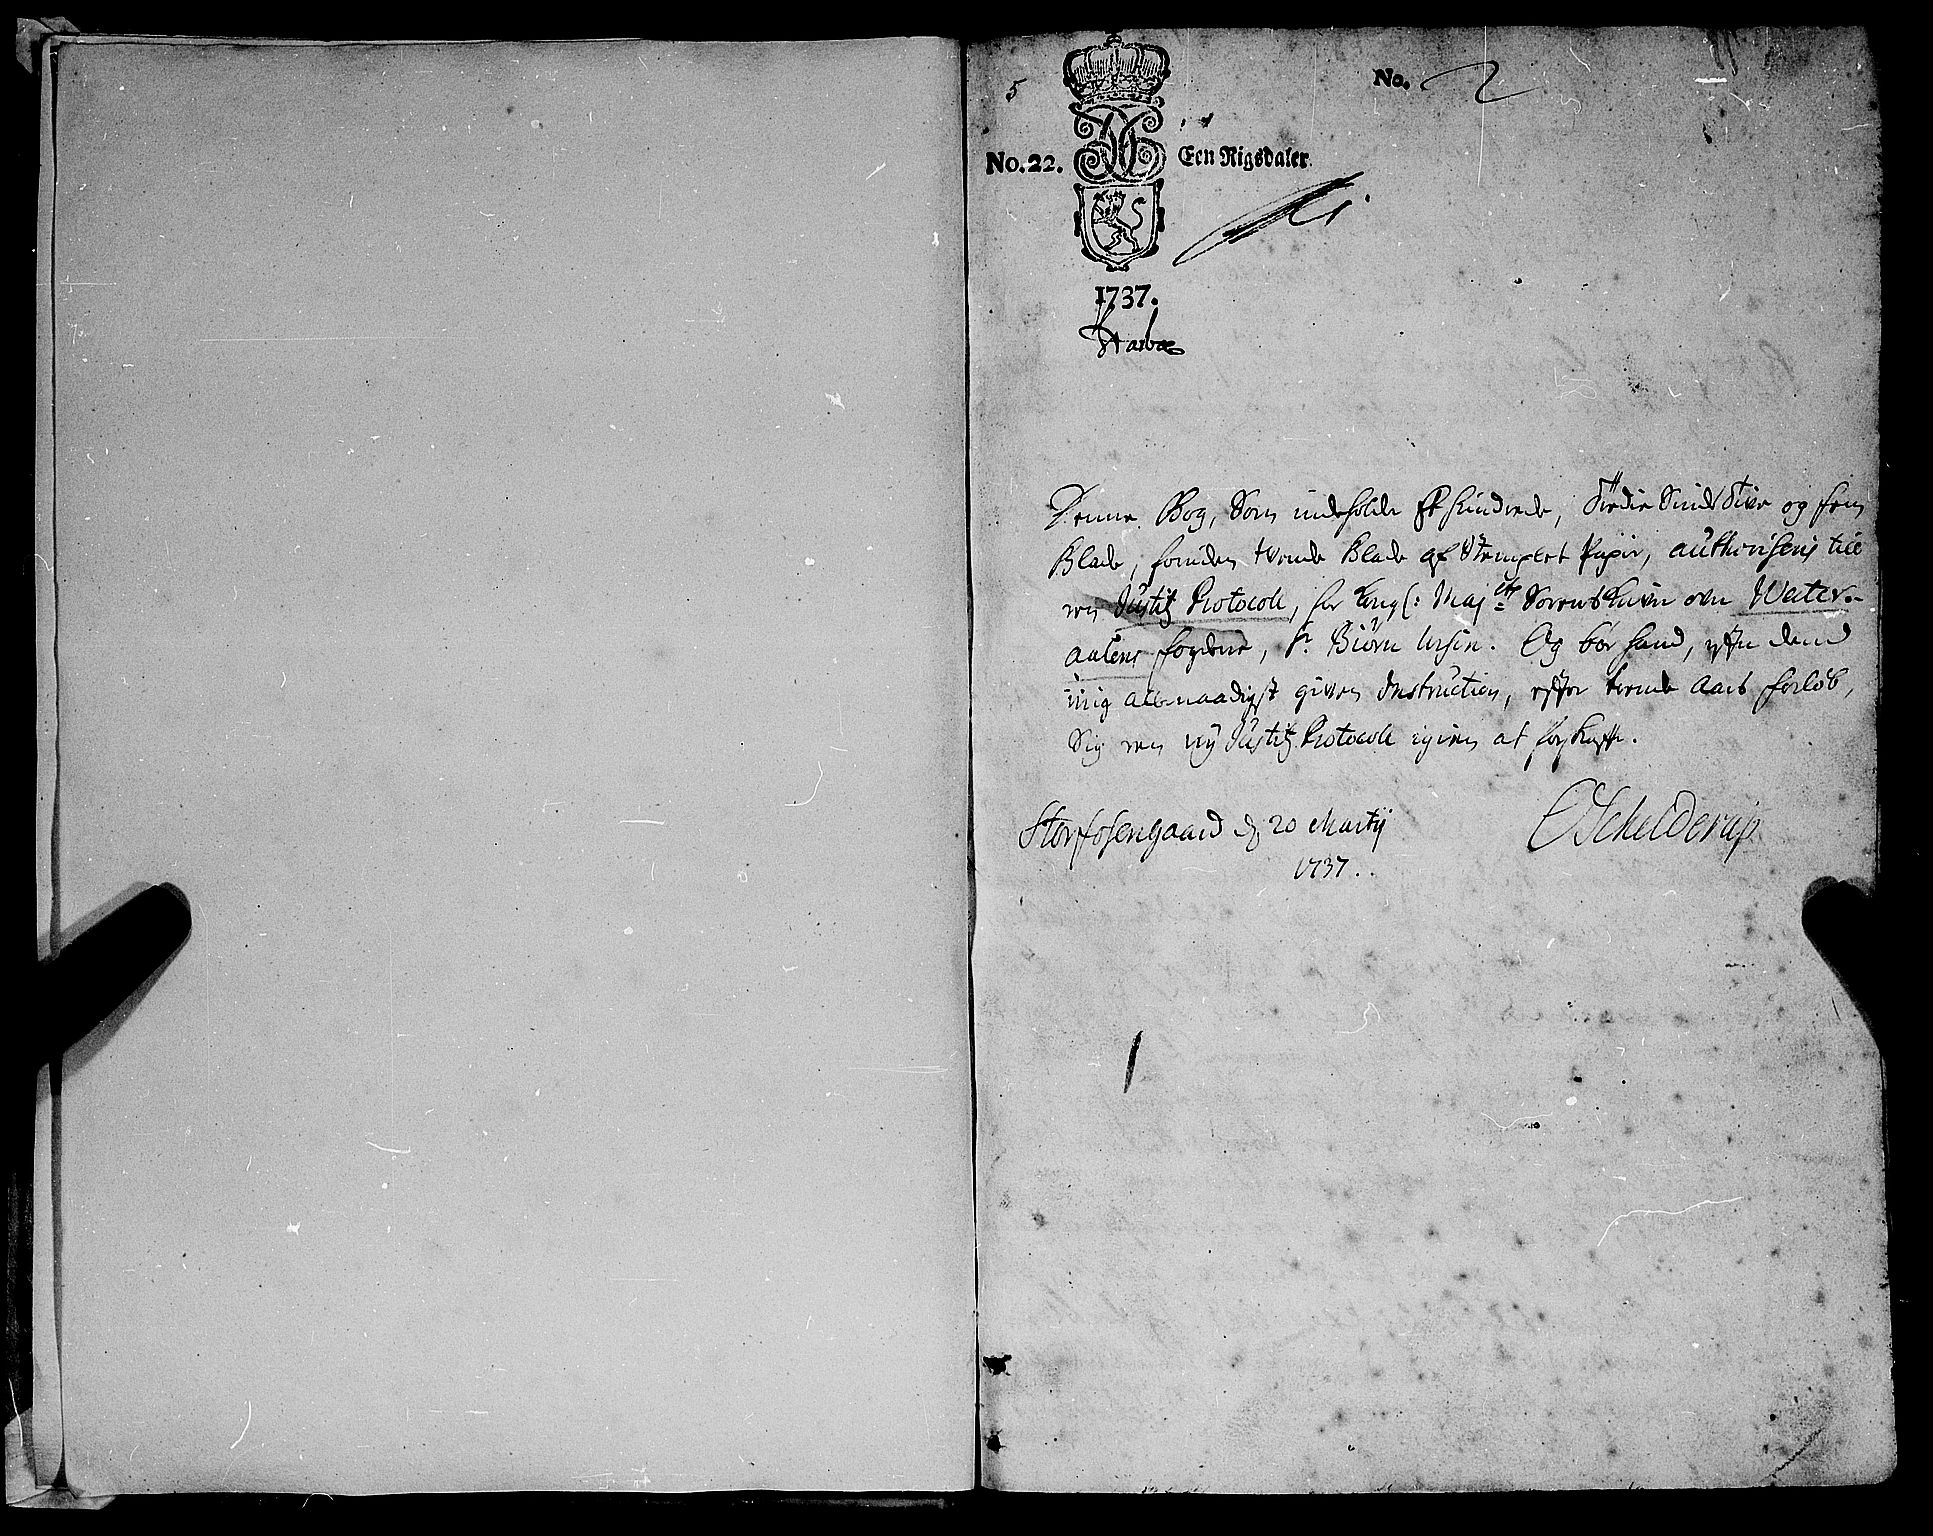 5
No. 2
No. 22. Een Rigsdaler.
1737.
Denne Bog, Som indeholder Et hundrede, Tredie Sinds Tive og fem
Blade, foruden tvende Blade af Stemplet Papir, authoriseris till
een Justitz Protocoll, for Kongl: Maj:ts Sorenskriver over Wester-
aalens fogderie, Sr. Biörn Ursin. Og bör hand, efter dend
mig allernaadigst given Instruction, efter trende aars forlöb,
Sig een nÿ Justitz Protocoll igien at forskaffe.
Storfosengaard d. 20 Martij
1737.
Schelderup